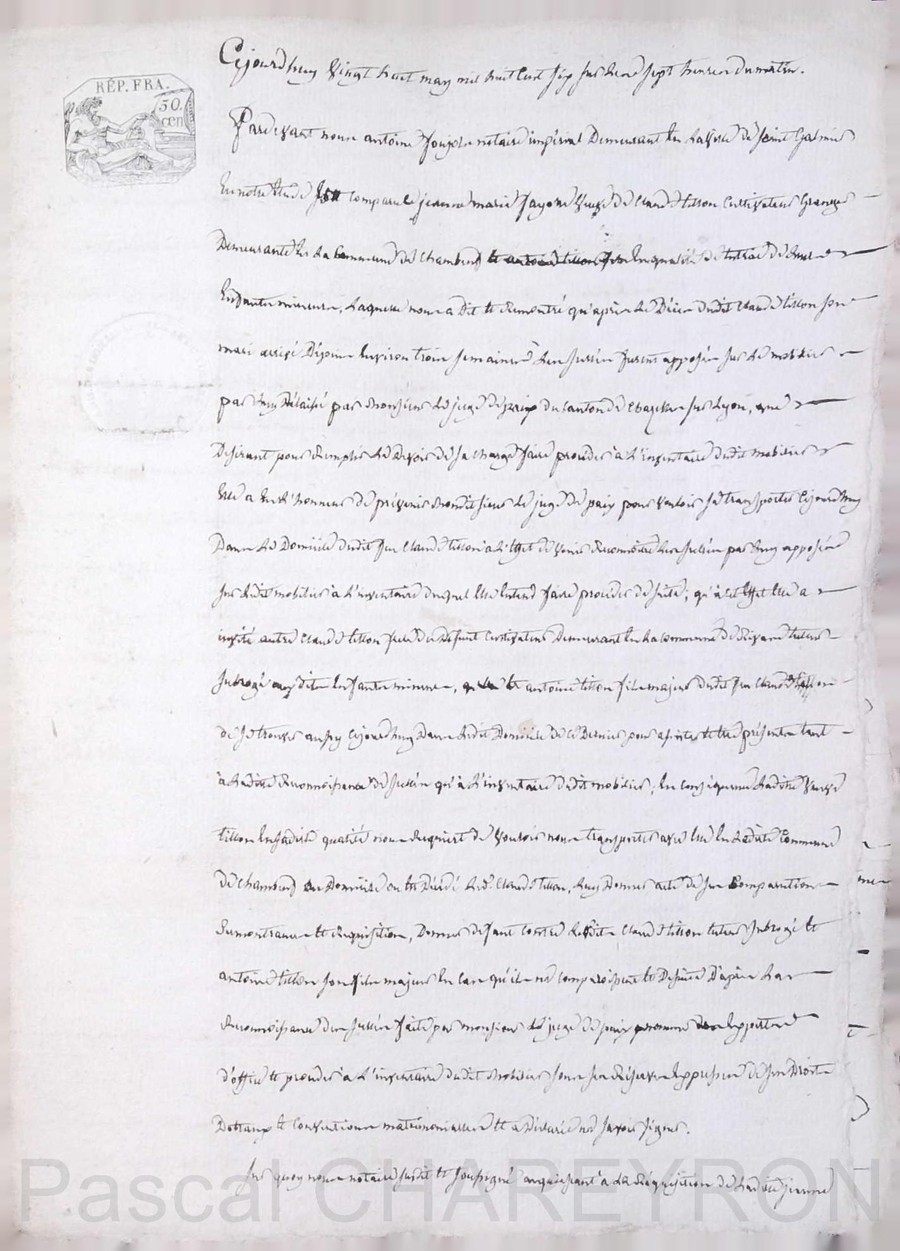 RÉP. FRA.
50.
cen
Cejourdhuy vingt huit may mil huit cent six sur les sept heures du matin.
Pardevant nous antoine notaire impérial Demeurant en la Ville de Saint Galmier
En notre Etude Est comparue jeanne marie fayone Veuve de Claude tisson Cultivateur Granger
Demeurante en la Commune de Chambeuf en qualité de tutrice de Ses
Enfants mineurs, Laquelle nous a dit et Remontré qu'après Le Décès dudit Claude tisson son
mari arrivé Depuis Environ trois semaines Les scellés furent apposés sur Le mobilier
par luy Délaissé par Monsieur Le juge de paix du Canton de Chazelles sur Lyon, que
Désirant pour Remplir Le Devoir de sa charge faire procéder à L'inventaire dudit mobilier
Elle a Eu L'honneur de prévenir Mondit sieur Le juge de paix pour vouloir se transporter Cejourdhuy
Dans Le Domicile dudit feu Claude tisson à L'effet de Venir Reconnoitre Les scellés par luy apposés
sur Ledit mobilier à L'inventaire duquel Elle Entend faire procéder de suite; qu'à Cet Effet Elle a
invité autre Claude tisson du Defunt Cultivateur Demeurant En La Commune de tuteur
subrogé auxdits Enfants mineurs, et antoine tisson fils majeur dudit feu Claude tisson
de se trouver aussy Cejourdhuy Dans Ledit Domicile de Ce Dernier pour assister et Etre présents tant
à Ladite Reconnoissance de scellés qu'à L'inventaire dudit mobilier; En Conséquence Ladite Veuve
tisson En sadite qualité nous Requiert de Vouloir nous transporter avec Elle En Ladite Commune
de Chambeuf au Domicile ou Est Décédé Led. Claude tisson, Luy Donner acte de sa Comparution
Remontrance et Requisition, Donner defaut Contre Lesdits Claude tisson tuteur subrogé et
antoine tisson son fils majeur En Cas qu'ils ne Comparoissent et D'après La
Reconnoissance des scellés faite par monsieur Le juge de paix
d'office et procéder à L'inventaire dudit Mobilier sous sa Réserve Expresse de ses Droits
Dottaux et Conventions matrimoniales et a Déclaré ne savoir signer.
Sur quoy nous notaire susdit et soussigné acquiesçant à La Réquisition de Ladite jeanne
Pascal CHAREYRON